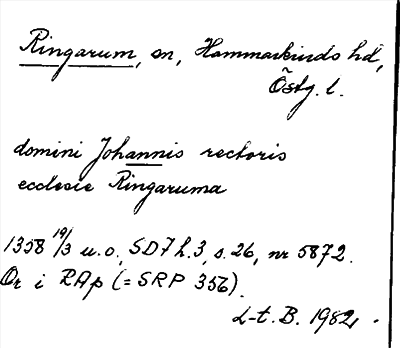 Ringarum, sn, Hammarkinds hd,
Östg. l.
domini Johannis rectoris
ecclesie Ringaruma
1358 19/3 u.o., SD 7 h.3, s. 26, nr 5872.
Or i RAp (= SRP 356).
L-t. B. 1982.